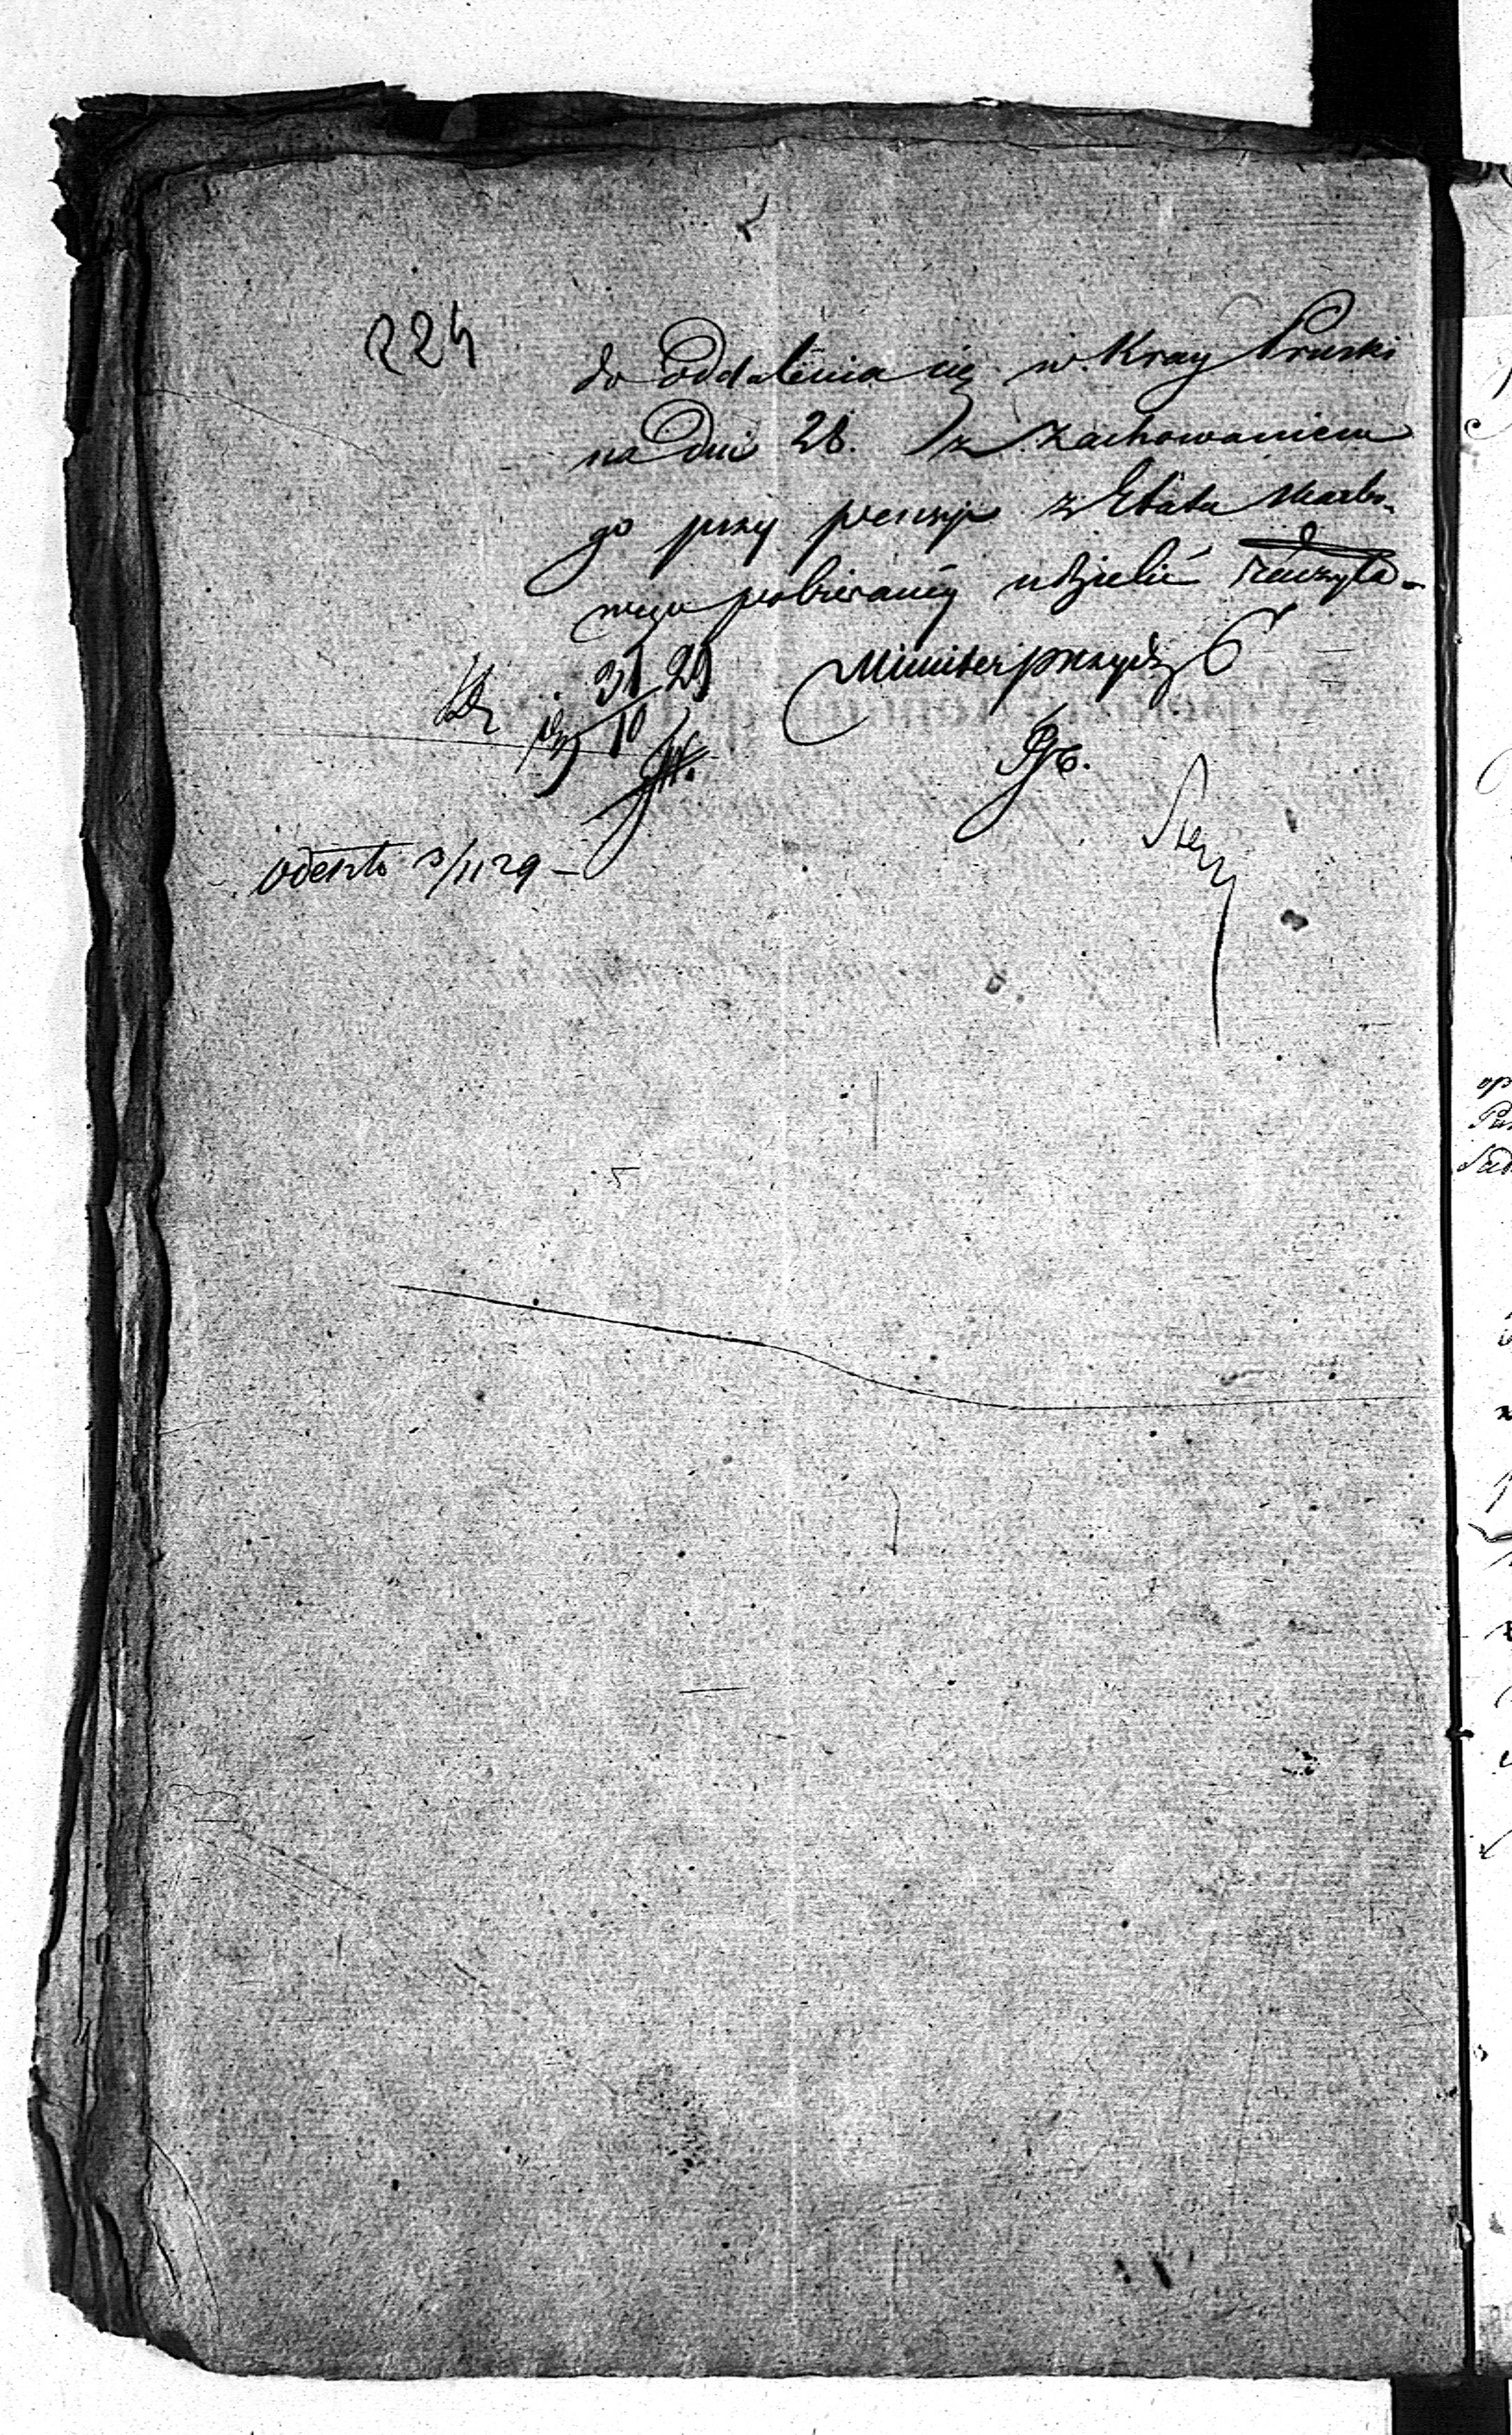 224
do oddalenia się w Kray Pruski
na dni 28. z zachowaniem
go przy pensyi z Etatu Skarbo-
wego pobieraney udzielić raczyła.
Minister prezyd
31/10 29
odeszło 3/11 29 –